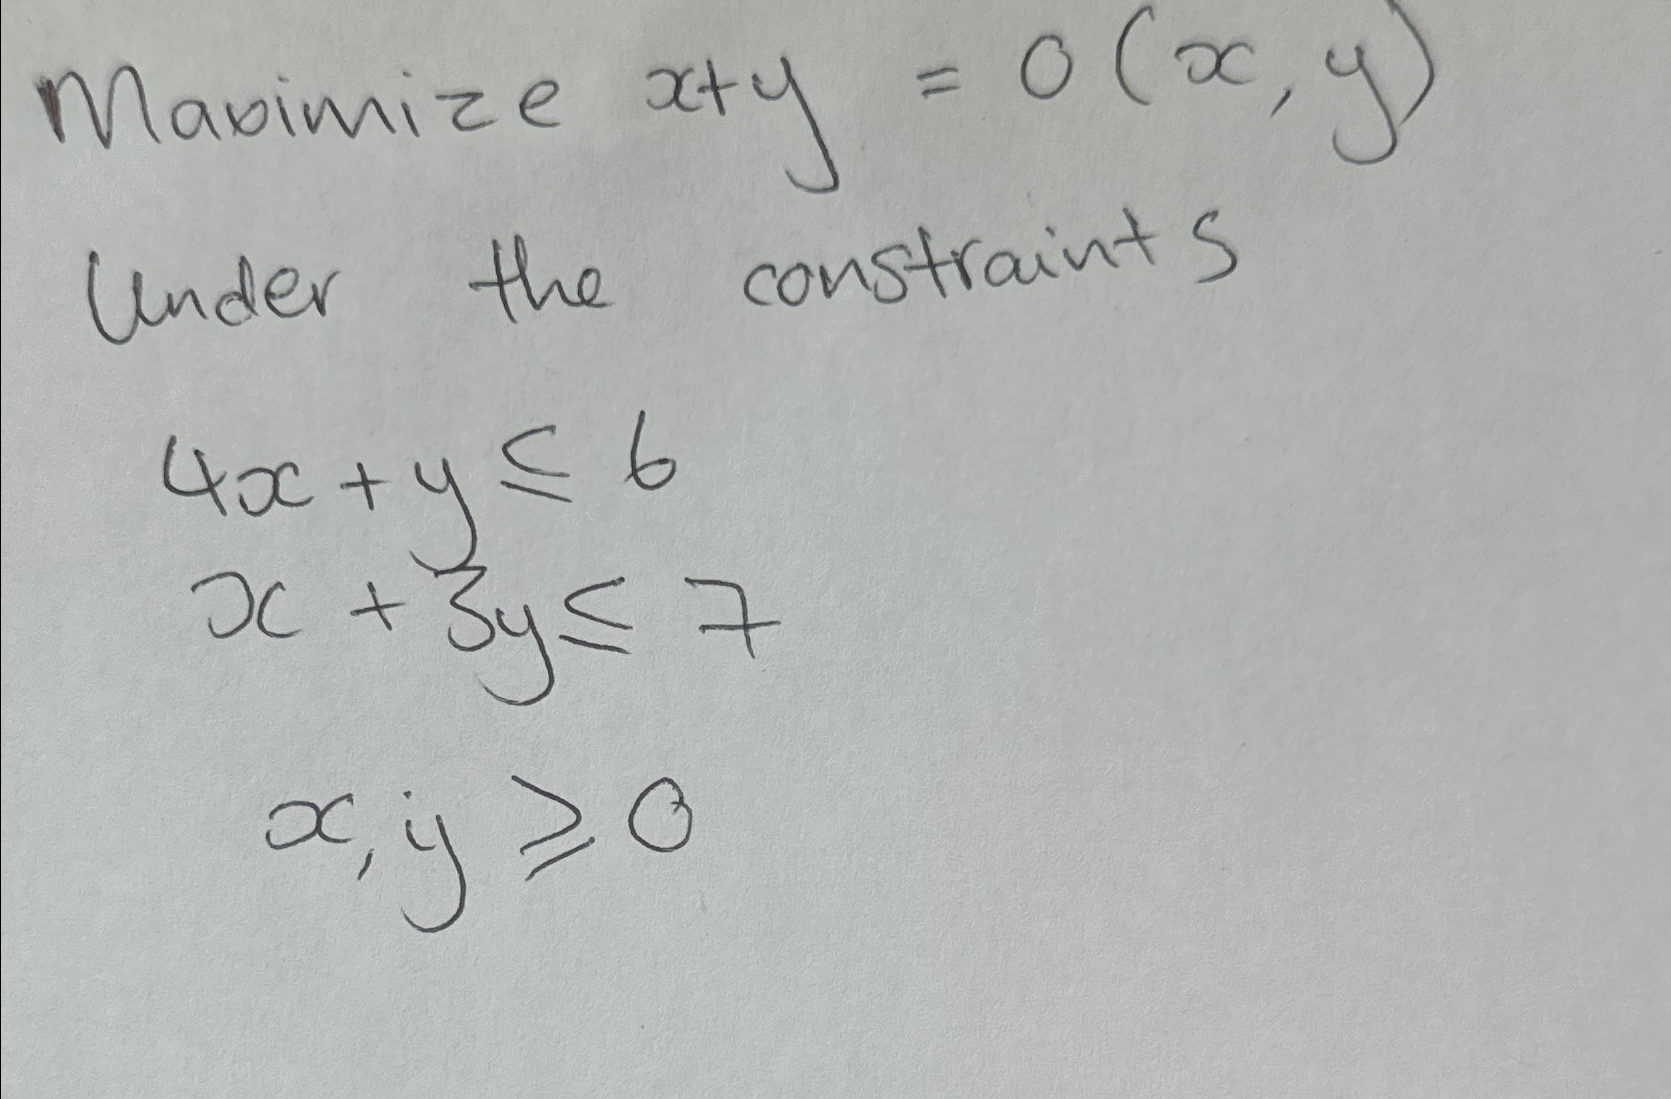 Maximize x+y = O(x, y)
Under the constraints
4x + y ≤ 6
x + 3y ≤ 7
x, y ≥ 0